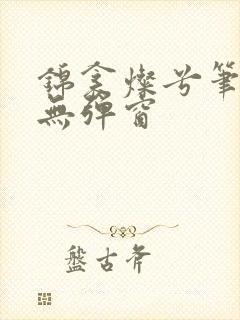 錦衾燦兮筆
無彈窗
盤古斧